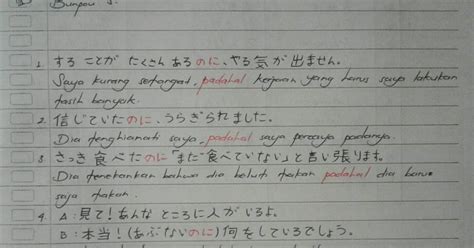 Bunpou 3.
1. することが たくさん あるのに、やる気が出ません。
Saya kurang setangat, padahal kerjaan yang harus saya lakukan
tasih banyak.
2. 信じていたのに、うらぎられました。
Dia tenghianati saya, padahal saya percaya padanya.
3. さっき 食べたのに「まだ食べていない」と言い張ります。
Dia tenekankan bahwa dia belum takan padahal dia baru
saja takan.
4. A : 見て！あんな ところに人がいるよ。
B : 本当！(あぶないのに)何をしているでしょう。